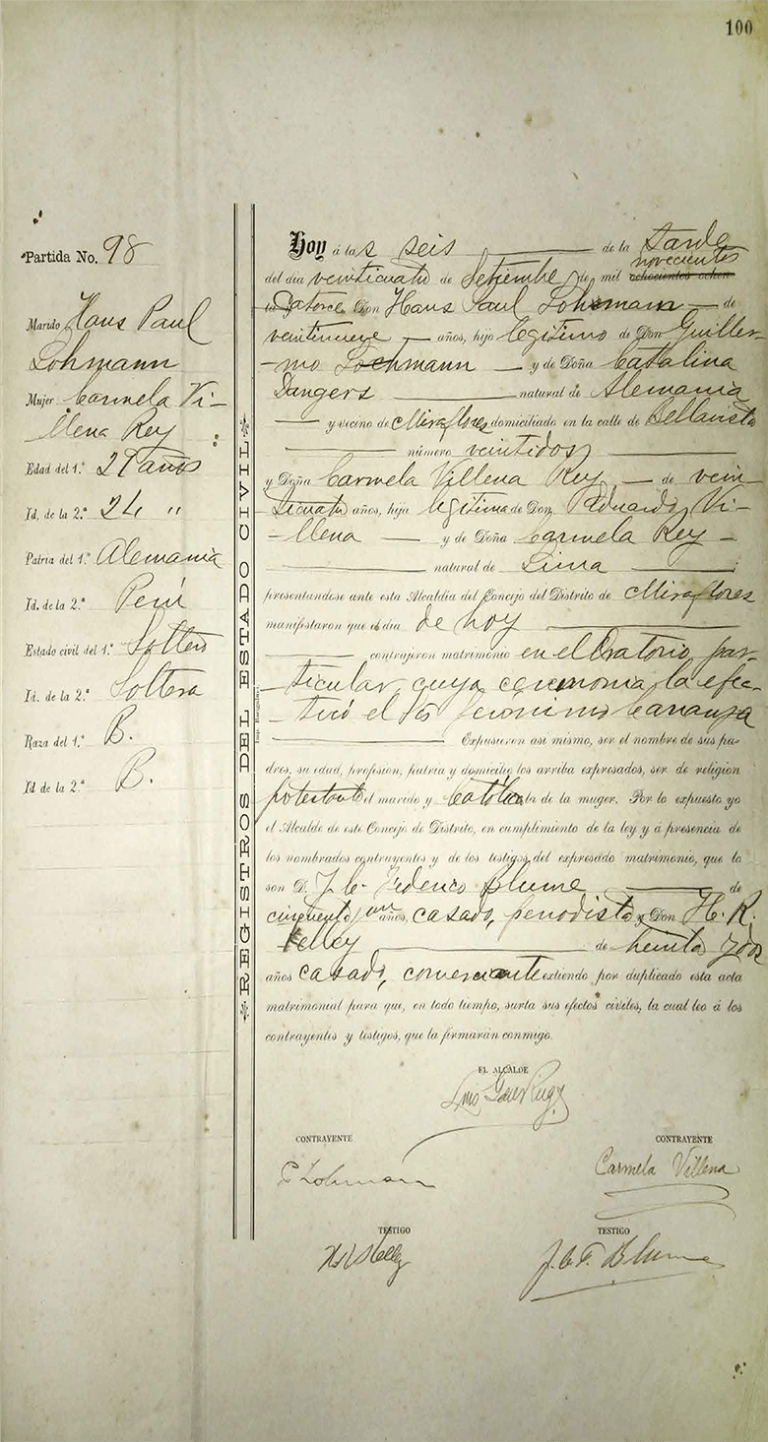 100
Partida No. 98
Marido Hans Paul
Lohmann
Mujer Carmela Vi-
llena Rey
Edad del 1.° 29 años
Id. de la 2.ª 24 "
Patria del 1.° Alemania
Id. de la 2.ª Perú
Estado civil del 1.° Soltero
Id. de la 2.ª Soltera
Raza del 1.° B.
Id de la 2.ª B.
REGISTROS DEL ESTADO CIVIL
Hoy á las seis de la tarde
novecientos
del dia veinticuatro de Setiembre de mil ochocientos ochen
ta Catorce Don Hans Paul Lohmann — de
veintinueve — años, hijo legitimo de Don Guiller-
-mo Lochmann — y de Doña Catalina
Dangers natural de Alemania
— y vecino de Miraflores domiciliado en la calle de Bellavista
número veintidos
y Doña Carmela Villena Rey — de vein-
ticuatro años, hija legitima de Don Eduardo Vi-
-llena — y de Doña Carmela Rey -
natural de Lima
presentandose ante esta Alcaldia del Concejo del Distrito de Miraflores
manifestaron que el dia de hoy
contrajeron matrimonio en el Oratorio par-
-ticular, cuya ceremonia la efec-
-tuó el Jerónimo Carranza
Expusieron asi mismo, ser el nombre de sus pa-
dres, su edad, profesion, patria y domicilio los arriba expresados, ser de religion
protestante el marido y Católica la de la muger. Por lo expuesto yo
el Alcalde de este Concejo de Distrito, en cumplimiento de la ley y á presencia de
los nombrados contrayentes y de los testigos del expresado matrimonio, que lo
son D. J. C. Federico Blume de
cincuenta y un años, casado, periodista y Don H. R.
Kelley de treinta y dos
años casado, comerciante extiendo por duplicado esta acta
matrimonial para que, en todo tiempo, surta sus efectos civiles, la cual leo á los
contrayentes y testigos, que la firmarán conmigo.
EL ALCALDE
CONTRAYENTE
CONTRAYENTE
Lohmann
Carmela Villena
TESTIGO
TESTIGO
Kelley
J. C. F. Blume